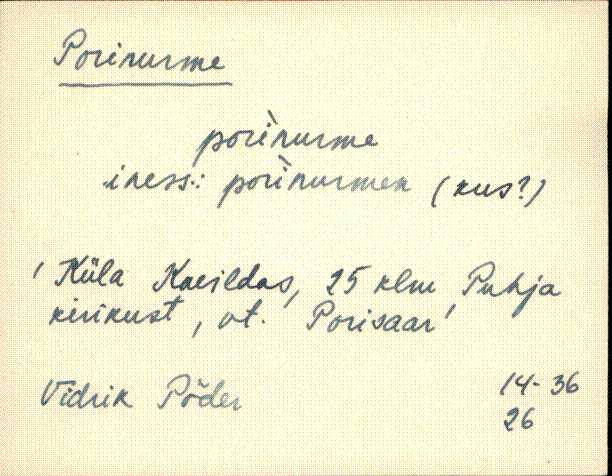 Porinurme
porìnurme
iness.: porìnurmen (kus?)
' Küla Kaeildas, 25 klm Puhja
kirikust, vt. Porisaar'
Vidrik Põder
14-36
26